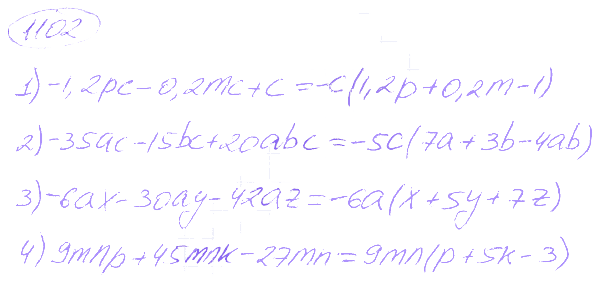 1102
1) -1,2pc - 0,2mc + c = -c(1,2p + 0,2m - 1)
2) -35ac - 15bc + 20abc = -5c(7a + 3b - 4ab)
3) -6ax - 30ay - 42az = -6a(x + 5y + 7z)
4) 9mnp + 45mnk - 27mn = 9mn(p + 5k - 3)